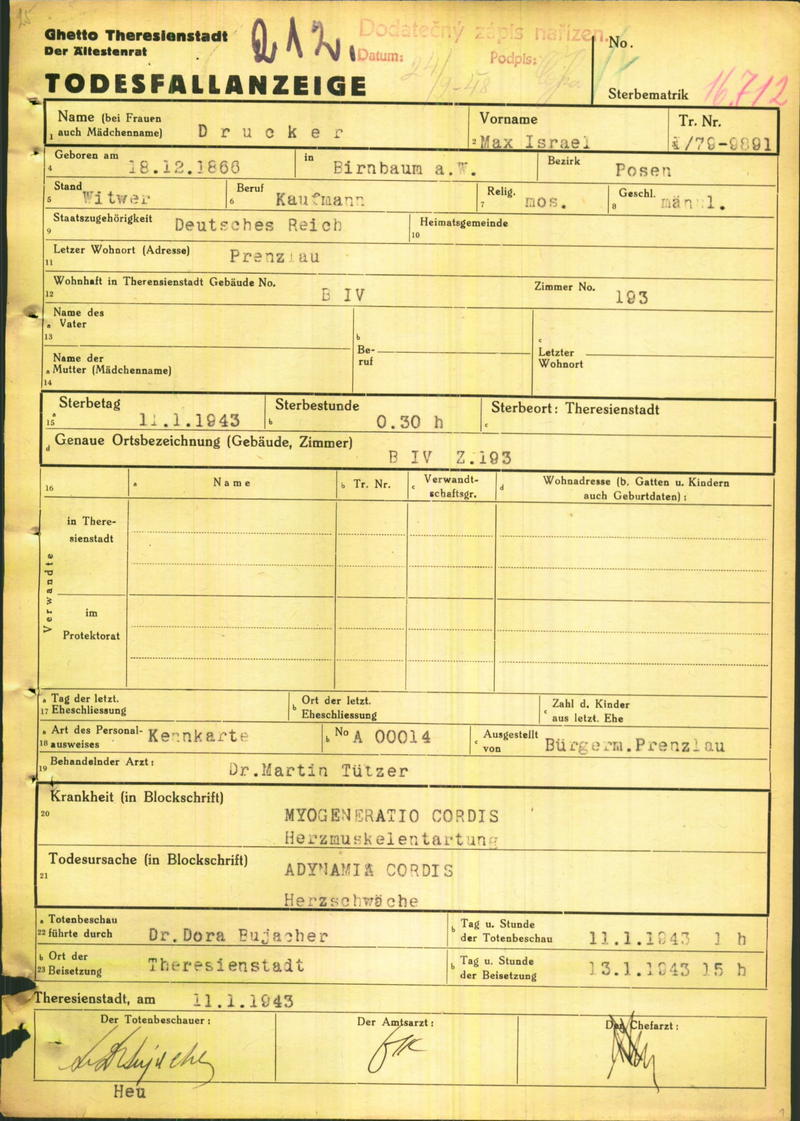 Ghetto Theresienstadt
Der Ältestenrat
212.
Dodatečný zápis nařízen.
Datum: 24/9-48 Podpis:
No.
TODESFALLANZEIGE
Sterbematrik 16.712
Name (bei Frauen auch Mädchenname) Drucker
Vorname Max Israel
Tr. Nr. I/79-9891
4 Geboren am 18.12.1866 in Birnbaum a.W. Bezirk Posen
5 Stand Witwer 6 Beruf Kaufmann 7 Relig. mos. 8 Geschl. männl.
9 Staatszugehörigkeit Deutsches Reich 10 Heimatsgemeinde
11 Letzer Wohnort (Adresse) Prenzlau
12 Wohnhaft in Therensienstadt Gebäude No. B IV Zimmer No. 193
13 a Name des Vater
b Beruf
c Letzter Wohnort
14 a Name der Mutter (Mädchenname)
15 a Sterbetag 11.1.1943 b Sterbestunde 0.30 h c Sterbeort: Theresienstadt
d Genaue Ortsbezeichnung (Gebäude, Zimmer) B IV Z.193
16 a Name b Tr. Nr. c Verwandtschaftsgr. d Wohnadresse (b. Gatten u. Kindern auch Geburtdaten):
Verwandte
in Theresienstadt
im Protektorat
17 a Tag der letzt. Eheschliessung b Ort der letzt. Eheschliessung c Zahl d. Kinder aus letzt. Ehe
18 a Art des Personalausweises Kennkarte b No A 00014 c Ausgestellt von Bürgerm.Prenzlau
19 Behandelnder Arzt: Dr.Martin Tützer
20 Krankheit (in Blockschrift) MYOGENERATIO CORDIS
Herzmuskelentartung
21 Todesursache (in Blockschrift) ADYNAMIA CORDIS
Herzschwäche
22 a Totenbeschau führte durch Dr.Dora Bujacher b Tag u. Stunde der Totenbeschau 11.1.1943 1 h
23 b Ort der Beisetzung Theresienstadt b Tag u. Stunde der Beisetzung 13.1.1943 15 h
Theresienstadt, am 11.1.1943
Der Totenbeschauer: Der Amtsarzt: Der Chefarzt:
Heu